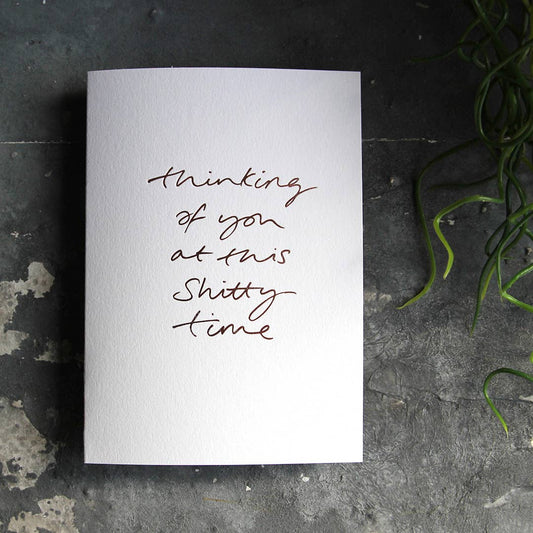 thinking
of you
at this
shitty
time